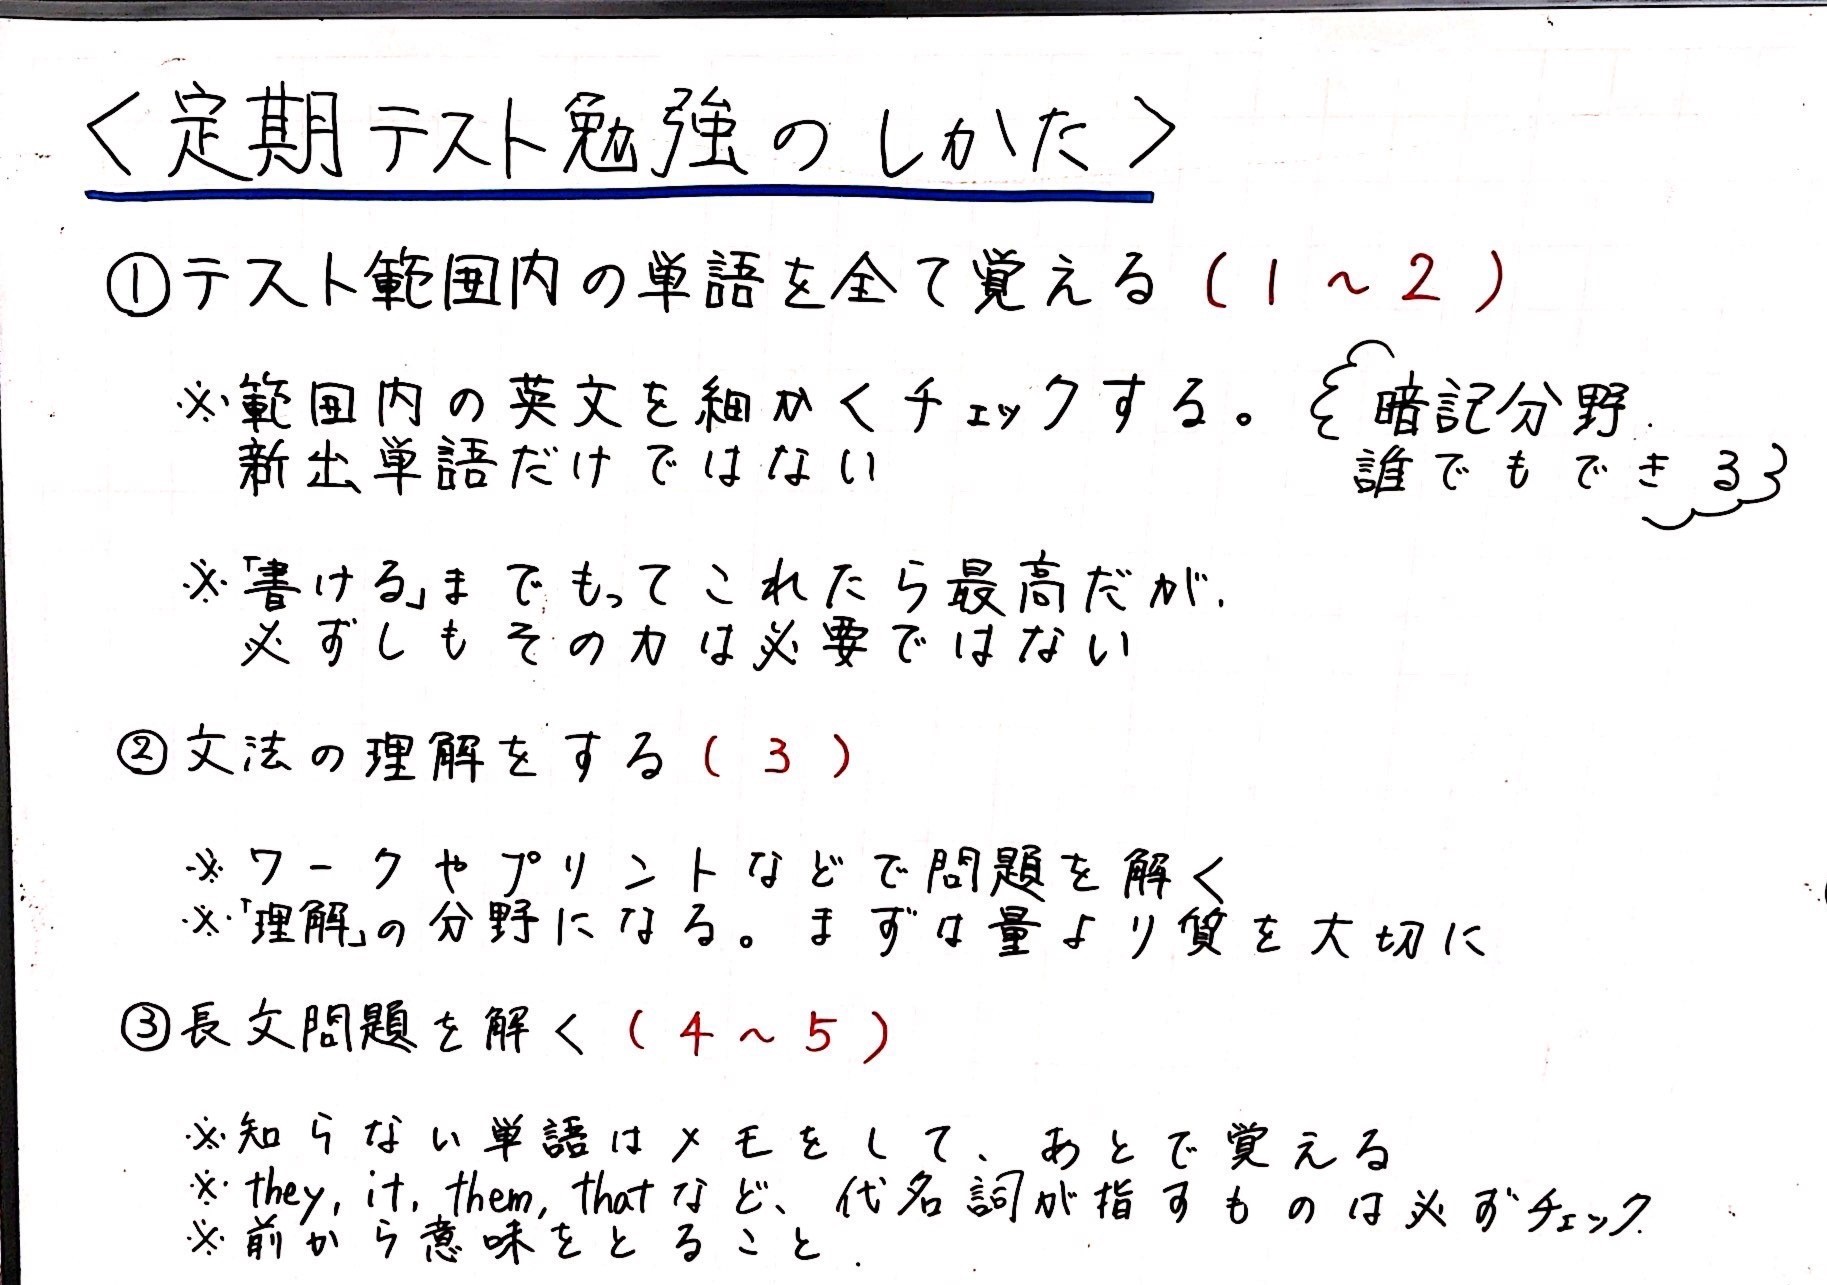 ＜定期テスト勉強のしかた＞
①テスト範囲内の単語を全て覚える（1～2）
※範囲内の英文を細かくチェックする。
新出単語だけではない
暗記分野.
誰でもできる
※「書ける」までもってこれたら最高だが、
必ずしもその力は必要ではない
②文法の理解をする（3）
※ワークやプリントなどで問題を解く
※「理解」の分野になる。まずは量より質を大切に
③長文問題を解く（4～5）
※知らない単語はメモをして、あとで覚える
※they, it, them, thatなど、代名詞が指すものは必ずチェック.
※前から意味をとること.